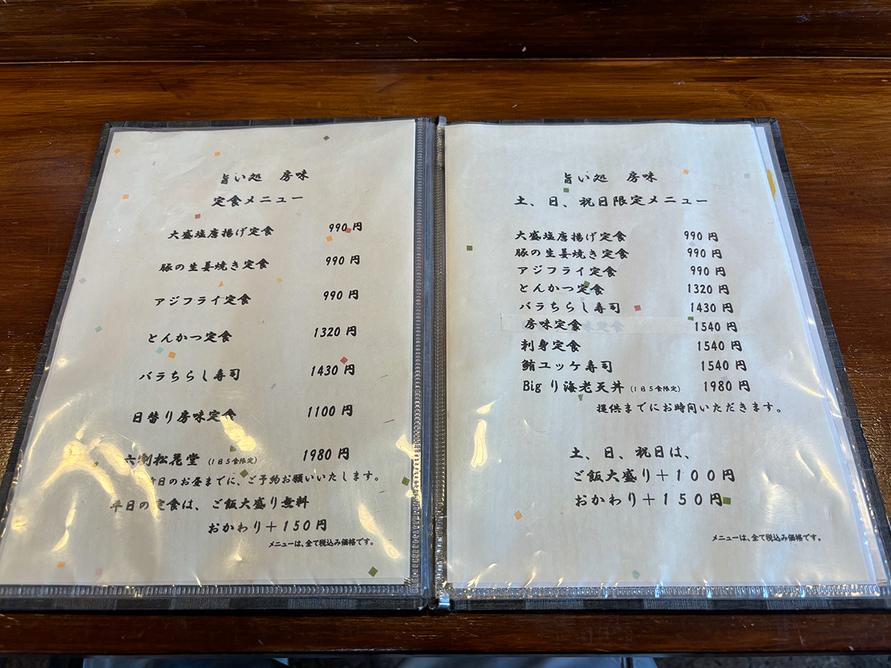 旨い処 房味
定食メニュー
大盛塩唐揚げ定食 990 円
豚の生姜焼き定食 990 円
アジフライ定食 990 円
とんかつ定食 1320 円
バラちらし寿司 1430 円
日替り房味定食 1100 円
六割松花堂 (1日5食限定) 1980 円
前日のお昼までに、ご予約お願いいたします。
平日の定食は、ご飯大盛り無料
おかわり+150円
メニューは、全て税込み価格です。
旨い処 房味
土、日、祝日限定メニュー
大盛塩唐揚げ定食 990 円
豚の生姜焼き定食 990 円
アジフライ定食 990 円
とんかつ定食 1320 円
バラちらし寿司 1430 円
房味定食 1540 円
刺身定食 1540 円
鮪ユッケ寿司 1540 円
Big り海老天丼 (1日5食限定) 1980 円
提供までにお時間いただきます。
土、日、祝日は、
ご飯大盛り+100円
おかわり+150円
メニューは、全て税込み価格です。